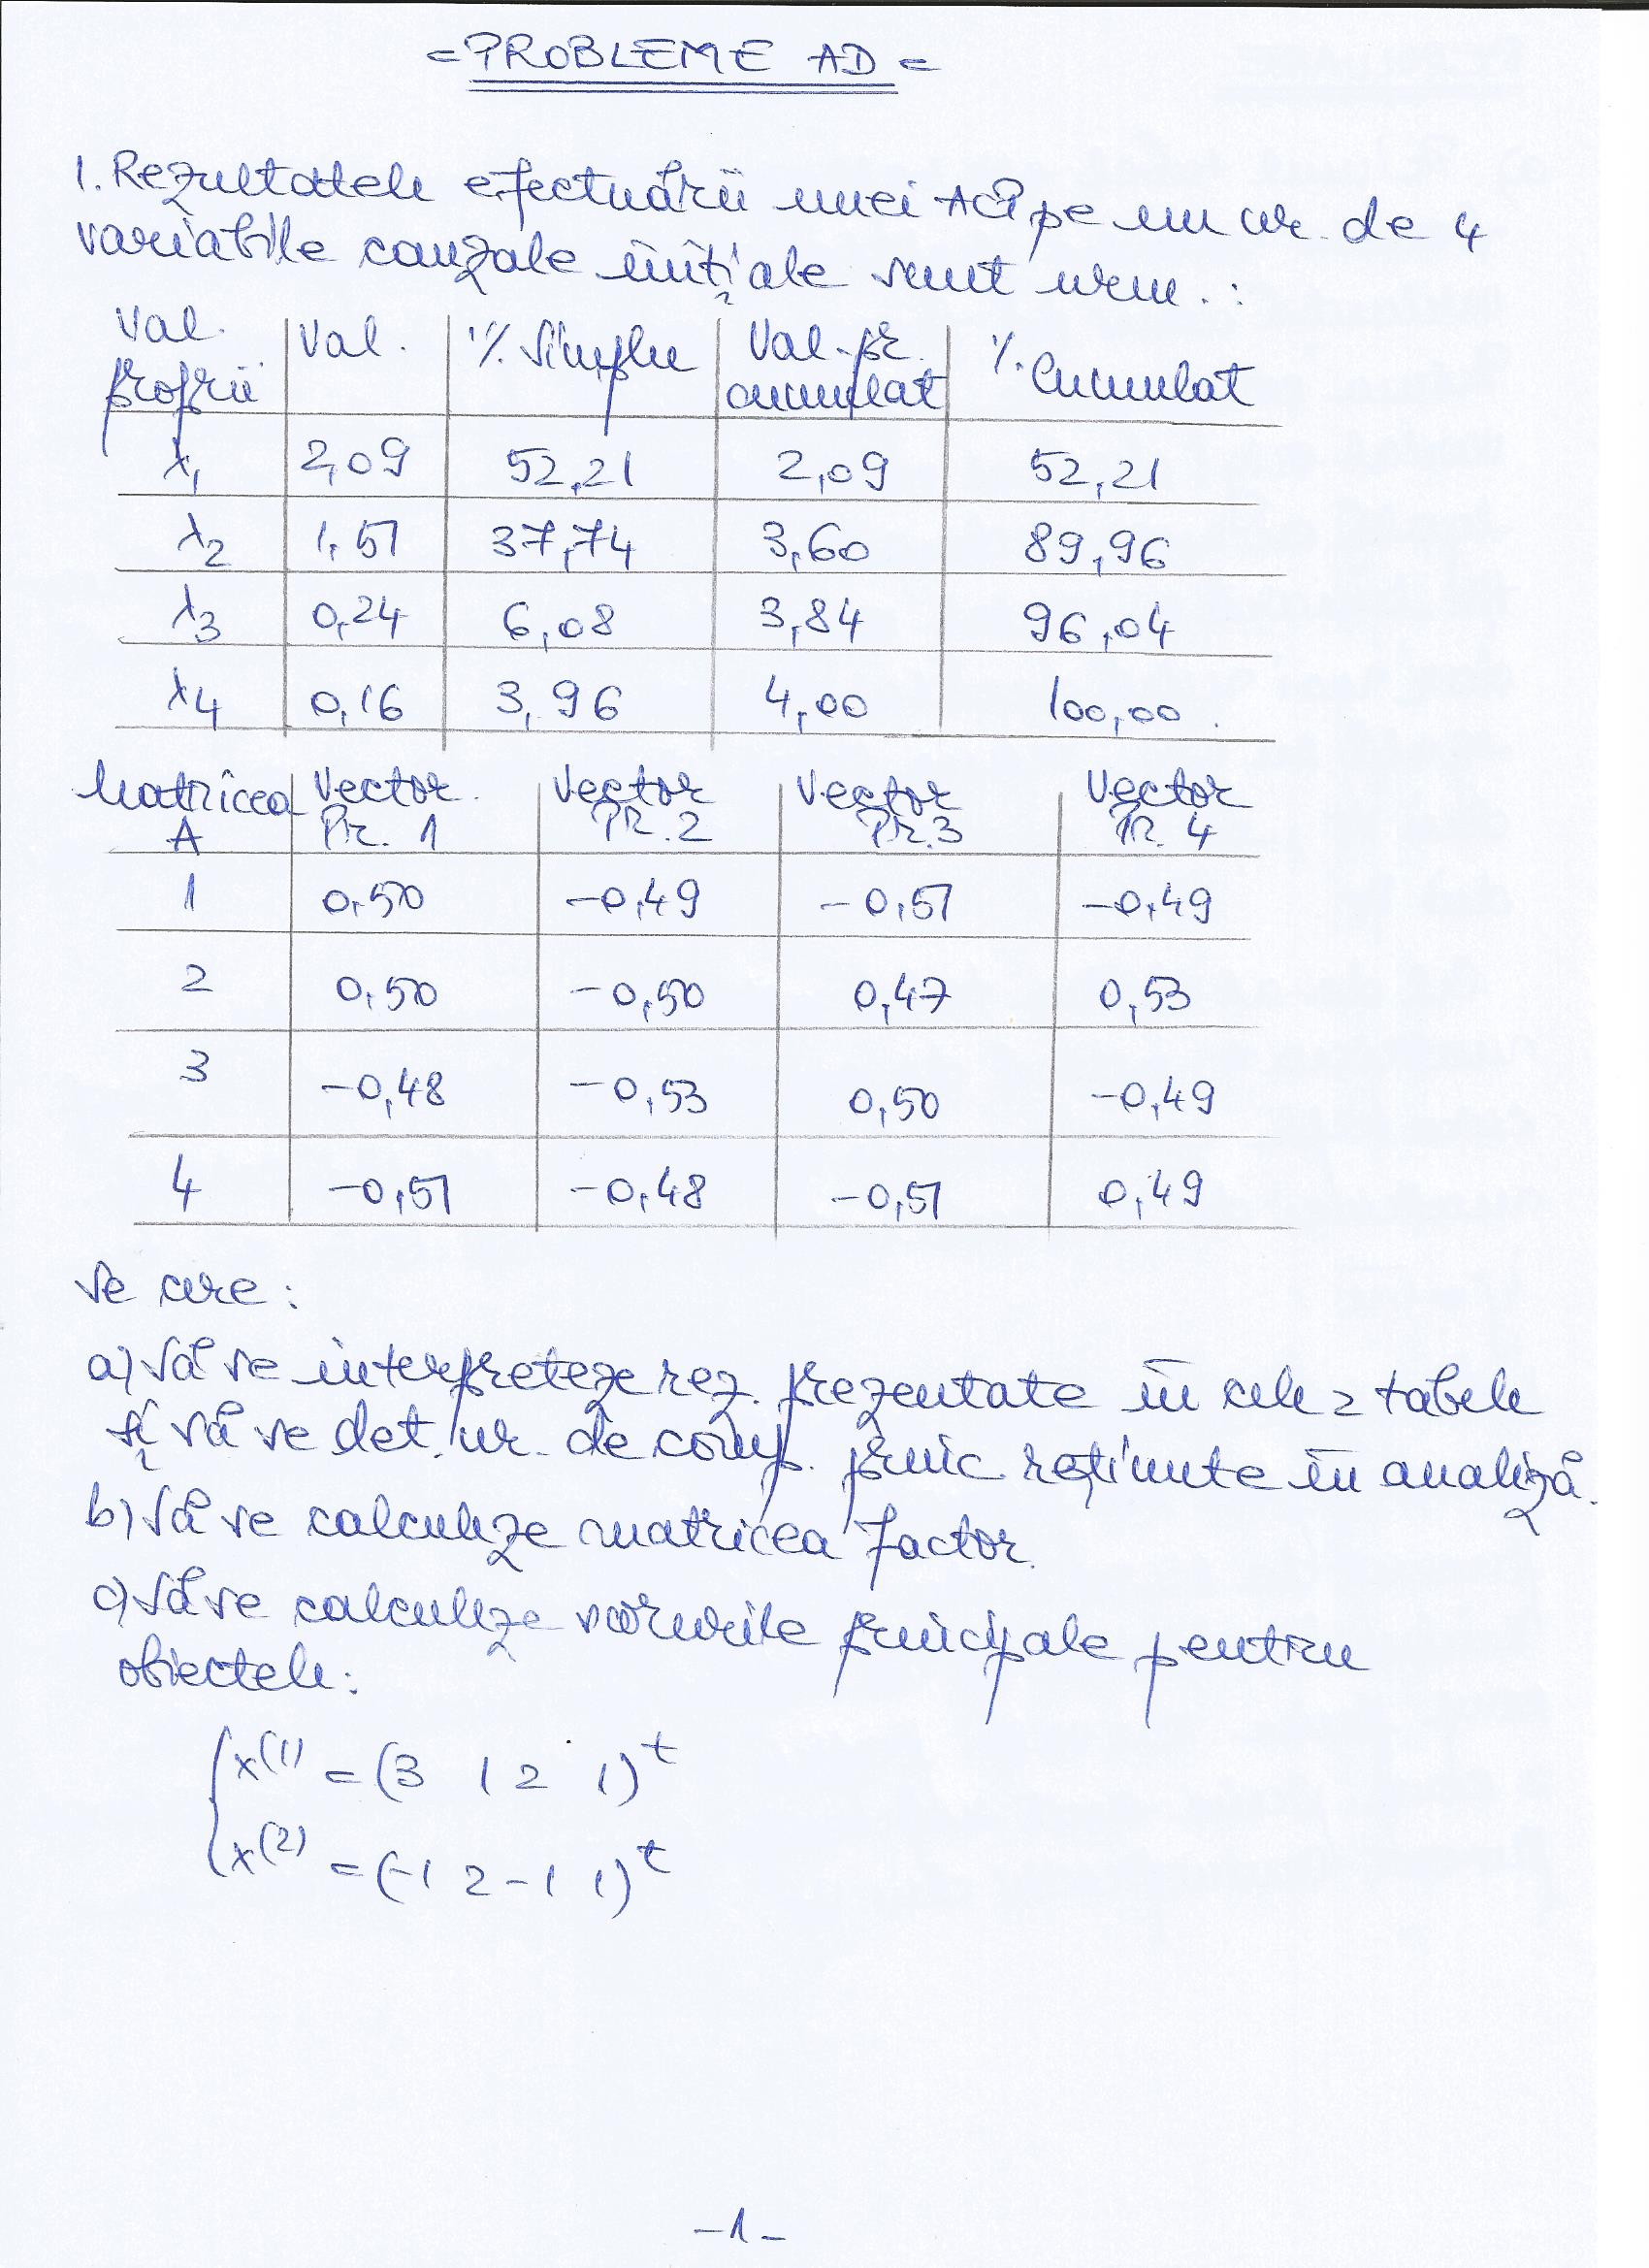 = PROBLEME AD =
1. Rezultatele efectuării unei ACP pe un nr. de 4
variabile cauzale inițiale sunt urm. :
Val. proprii Val. % Simplu Val. pr. cumulat % Cumulat
λ1 2,09 52,21 2,09 52,21
λ2 1,51 37,74 3,60 89,96
λ3 0,24 6,08 3,84 96,04
λ4 0,16 3,96 4,00 100,00
Matricea A Vector Pr. 1 Vector PR. 2 Vector Pr. 3 Vector PR. 4
1 0,50 -0,49 -0,51 -0,49
2 0,50 -0,50 0,47 0,53
3 -0,48 -0,53 0,50 -0,49
4 -0,51 -0,48 -0,51 0,49
Se cere :
a) Să se interpreteze rez. prezentate în cele 2 tabele
și să se det. nr. de comp. princ. reținute în analiză.
b) Să se calculeze matricea factor.
c) Să se calculeze scorurile principale pentru
obiectele :
x(1) = (3 1 2 1)t
x(2) = (-1 2 -1 1)t
-1-